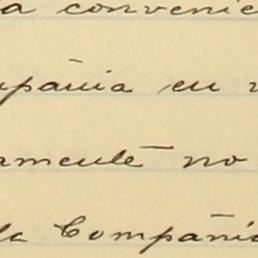 a convenie
pañia en v
amente no
la Compañia